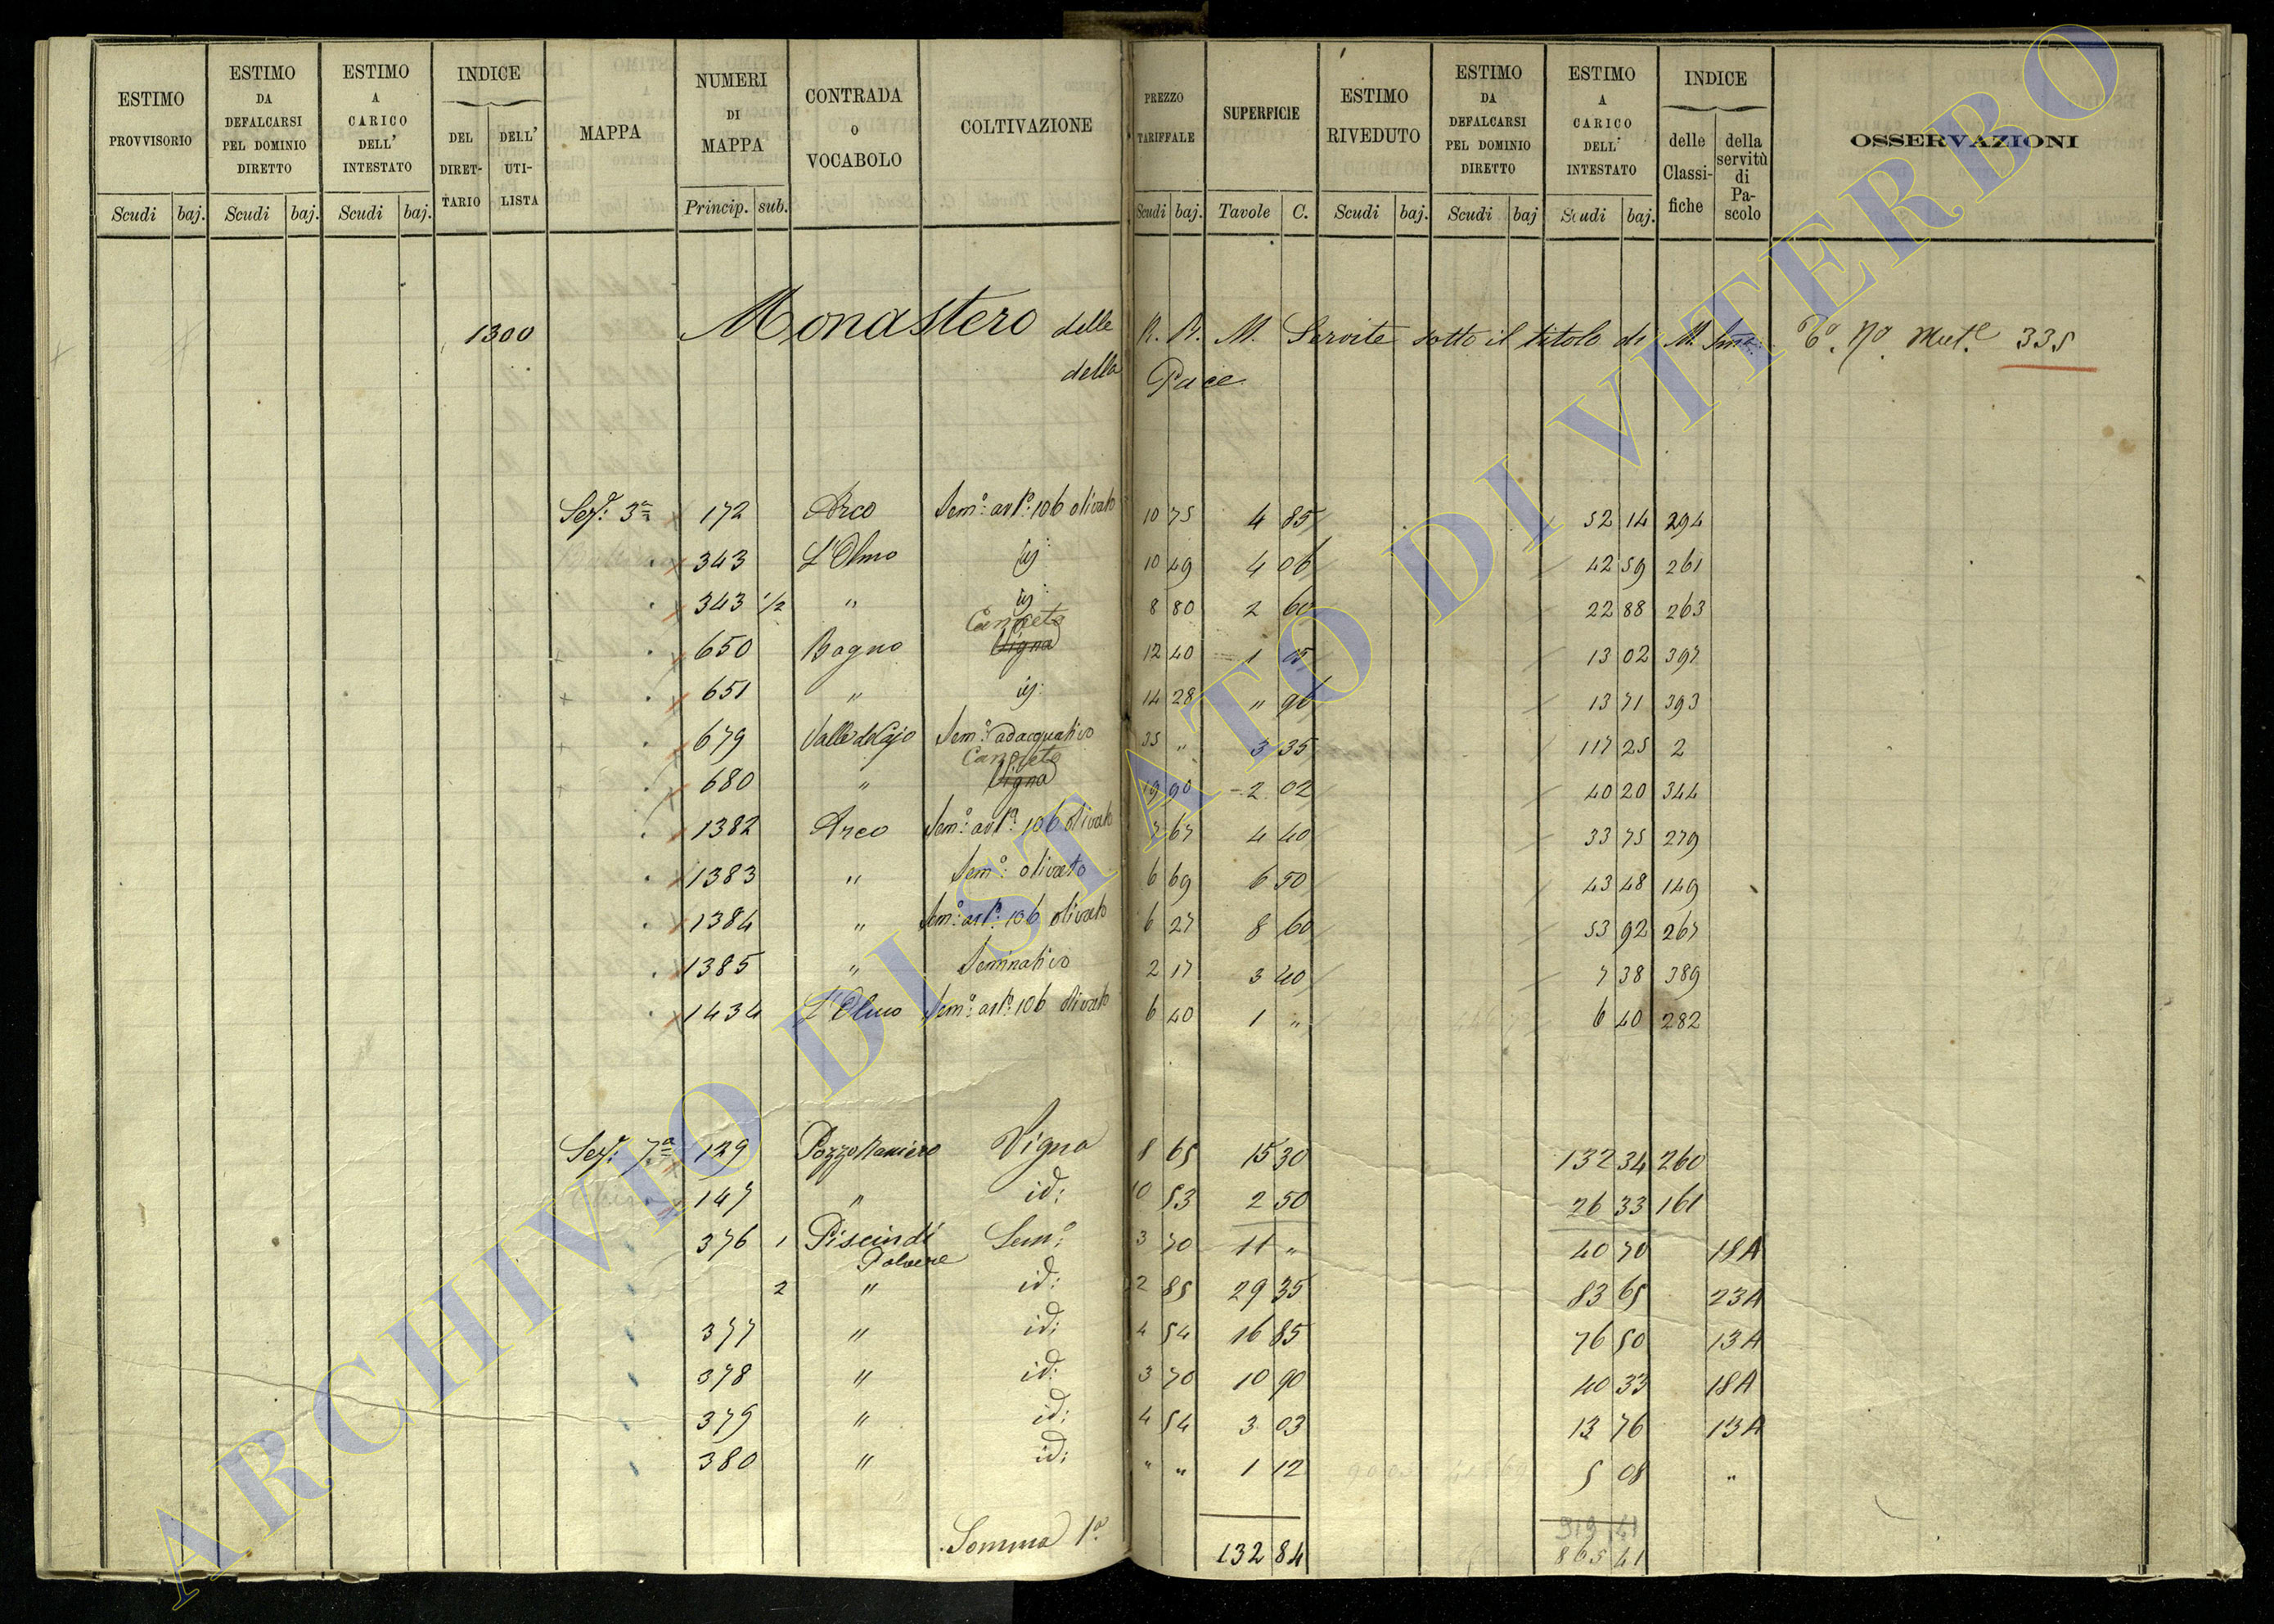 ESTIMO PROVVISORIO | ESTIMO DA DEFALCARSI PEL DOMINIO DIRETTO | ESTIMO A CARICO DELL' INTESTATO | INDICE | MAPPA | NUMERI DI MAPPA | CONTRADA O VOCABOLO | COLTIVAZIONE | PREZZO TARIFFALE | SUPERFICIE | ESTIMO RIVEDUTO | ESTIMO DA DEFALCARSI PEL DOMINIO DIRETTO | ESTIMO A CARICO DELL' INTESTATO | INDICE | OSSERVAZIONI
DEL DIRET-TARIO | DELL' UTI-LISTA | delle Classi-fiche | della servitù di Pa-scolo
Scudi | baj. | Scudi | baj. | Scudi | baj. | Princip. | sub. | Scudi | baj. | Tavole | C. | Scudi | baj. | Scudi | baj | Scudi | baj.
1300 Monastero delle R. R. M. Servite sotto il titolo di M. Sma: 335
della Pace
Sez: 3a 172 Arco Sem: olivato 10 75 4 85 52 14 294
343 L'Olmo id: 10 49 4 06 42 59 261
343 1/2 " id: 8 80 2 60 22 88 263
Canneto
650 Bagno Vigna 12 40 1 05 13 02 397
651 " id: 14 28 " 96 13 71 393
679 Valle del Cajo Sem: adacquativo 35 " 3 35 117 25 2
Canneto
680 " Vigna 19 90 2 02 40 20 344
1382 Arco Sem: olivato 7 67 4 40 33 75 279
1383 " Sem: olivato 6 69 6 50 43 48 149
1384 " Sem: olivato 6 27 8 60 53 92 267
1385 " Seminativo 2 17 3 40 7 38 389
1434 L'Olmo Sem: olivato 6 40 1 " 6 40 282
Sez: 7a 129 Pozzo Raniero Vigna 8 65 15 30 132 34 260
147 " id: 10 53 2 50 26 33 161
376 1 Piscindi Sem: 3 70 11 " 40 70 18A
Polvere
2 " id: 2 85 29 35 83 65 23A
377 " id: 4 54 16 85 76 50 13A
378 " id: 3 70 10 90 40 33 18A
379 " id: 4 54 3 03 13 76 13A
380 " id: " " 1 12 5 08 "
919 41
Somma 1a 132 84 865 41
ARCHIVIO DI STATO DI VITERBO